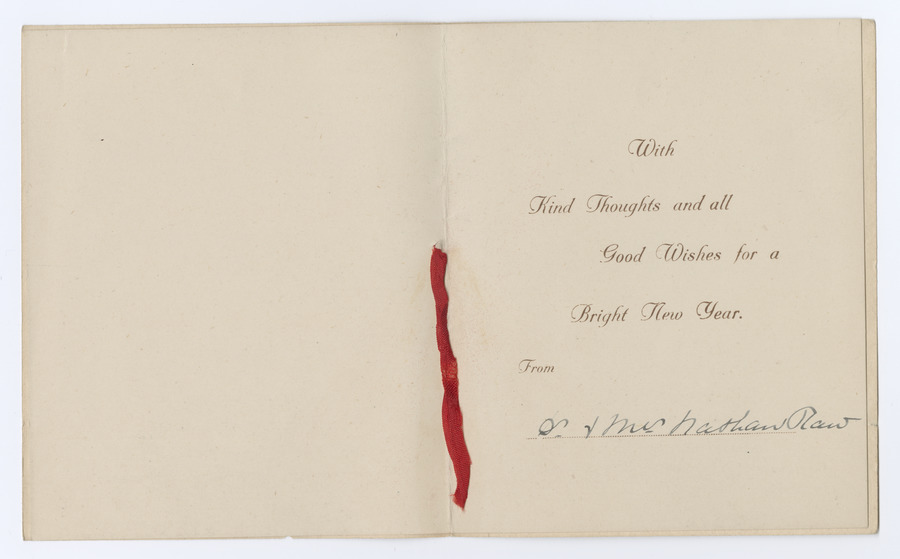 With
Kind Thoughts and all
Good Wishes for a
Bright New Year.
From
Dr. & Mrs Nathan Raw